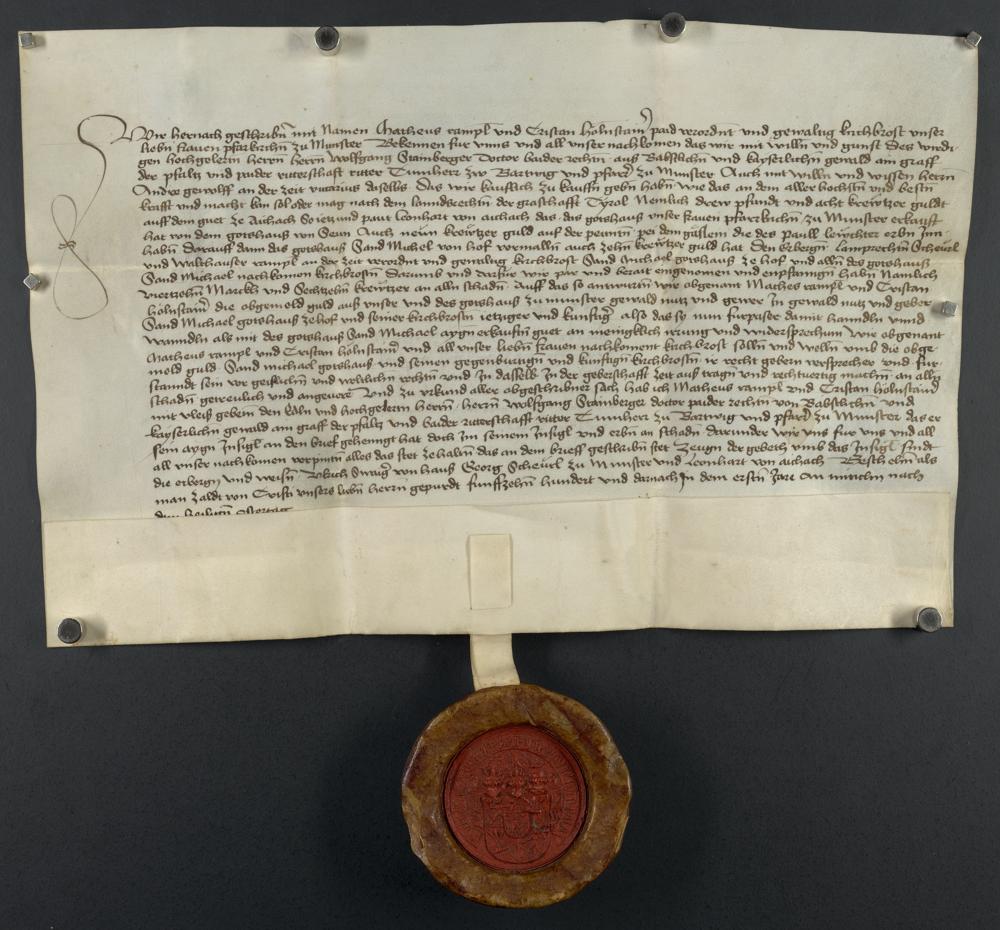 Wir hernach geschribñ mit Namen Matheus rampl und Cristan Hölnstainˀ paid verordnt und gewaltig kirchbrost unser
liebn frauen pfarkirchñ zu Munster Bekennen für unns und all unser nachkomen das wir mit willñ und gunst Des wirdi
gen hochgelertn herrn herrn Wolfgang Stamberger Doctor baider rechtn auß Babstlichñ und kayserlichñ gewald ain graff
der pfaltz und pruder ritterschafft ritter Tumherr zw Bartwig und pfarrˀ zu Munster Auch mit willn und wissen herrn
Andre gerwolff an der zeit vicarius daselbs Das wir kauflich zu kauffñ gebn habñ wie das an dem aller hochstñ und bestñ
krafft und macht hin sol oder mag nach dem lanndsrechtn der graffschafft Tyrol Nemlich drew pfundt und acht kreitzer guldt
auff dem guet ze Aichach So ietzund paut Leonhart von aichach das das gotshauß unser frauen pfarrkirchñ zu Munster erkaufft
hat von dem gotshauß von Seun Auch newn kreitzer guld auf der peuntñ pei dem gässlein die des Paull leychter erbn Inn
habñ Darauff dann das gotshauß Sand Michel von hof vormallñ auch zehñ kreitzer guld hat Den Erbergñ Lamprechtñ Scheurl
und Walthauser rampl an der zeit verordnt und gewaltig kirchbrost Sand Michael gotshauß ze hof und allñ des gotshauß
Sand Michael nachkomen kirchbrostñ Darumb und dafür wir par und berait eingenomen und enpfanngñ habñ Namlich
viertzehñ Marckh und Sechtzehñ kreitzer an allñ schadñ Auff das so antwurtñ wir obgenant Mathes rampl und Cristan
hölnstainˀ die obgemeld guld auß unser und des gotshauß zu munster gewald nutz und gewer In gewald nutz und geber
Sand Michael gotshauß ze hof und seiner kirchbrostñ ietziger und kunftigˀ also das sy nun furpaser damit hanndln unnd
wanndln als mit des gotshauß Sand Michael aygñ erkauftñ guet an meniklich irrung und widersprechum Wir obgenant
Matheus rampl und Cristan hölnstainˀ und all unser liebñ frauen nachkoment kirchbrost sollñ und wellñ umb die obge
meld guld Sand michael gotshauß und seinen gegenburtigñ und kunftigñ kirchbrostñ ir recht gebern versprecher und fur
stanndt sein vor geistlichñ und weltlichñ rechtñ und In dasselb In der geberschafft zeit auß tragñ und rechtvertig machñ an allñ
schadñ getreulich und angeverˀ Und zu urkund aller abgeschribner sach hab ich Matheus rampl und Cristan hölnstainˀ
mit vleiß gebetn den Edln und hochgelertn herrñ herrñ Wolfgang Stamberger doctor paider rechtñ von Babstlichñ und
kayserlichñ gewald ain graff der pfaltz und bader ritterschafft ritter Tumherr zu Bartwig und pfarrˀ zu Munster das er
sein aygñ Insigl an den brief gehenngt hat doch im seinem Insigl und erbñ an schadñ darunder wir uns fur uns und all
all unser nachkomen verpintñ alles das stet zehaltñ das an dem brieff geschribñ stet Zeugñ der gebeth umb das Insigl sindt
die erbergñ und weisñ Ulrich Swaigˀ von hauß Georg Scheurl zu Munster und leonhart von aichach Beschehñ als
man zaldt von Cristi unsers liebñ herrñ gepurdt funffzehñ hundert und darnach Jn dem erstñ Jare An mitichñ nach
dem heiligñ Ostertag